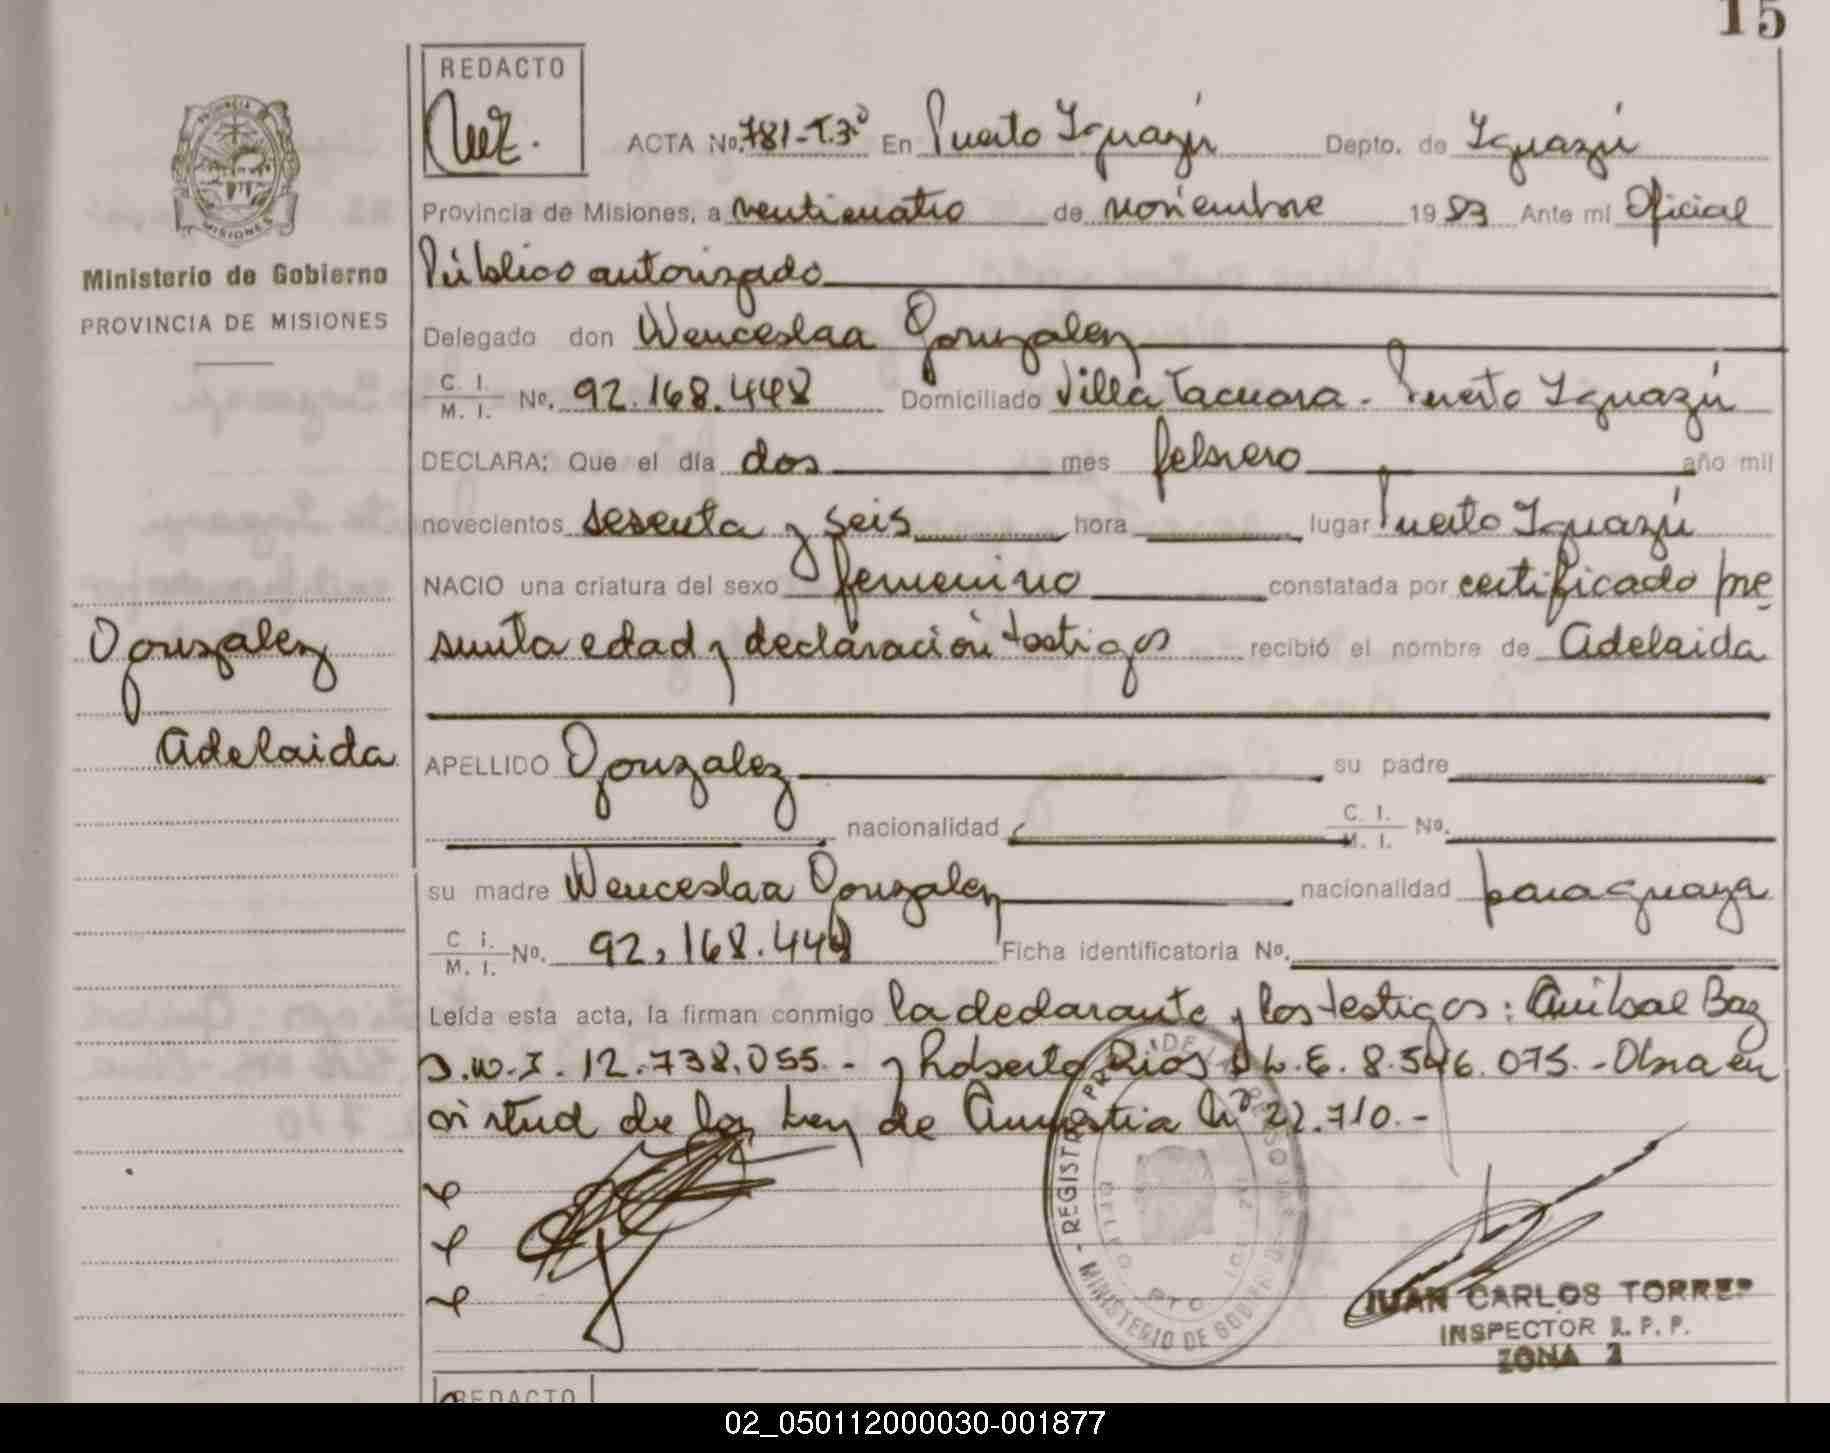 15
REDACTO
ACTA No. 781-T.3º En Puerto Iguazú Depto. de Iguazú
Provincia de Misiones, a venticuatro de noviembre 1983 Ante mi Oficial
Público autorizado
Ministerio de Gobierno
PROVINCIA DE MISIONES
Delegado don Wenceslaa Gonzalez
C. I. M. I. No. 92.168.448 Domiciliado Villa Tacuara - Puerto Iguazú
DECLARA: Que el día dos mes febrero año mil
novecientos sesenta y seis hora lugar Puerto Iguazú
NACIO una criatura del sexo femenino constatada por certificado pre
sunta edad y declaración testigos recibió el nombre de Adelaida
Gonzalez
Adelaida
APELLIDO Gonzalez su padre
nacionalidad C. I. M. I. No.
su madre Wenceslaa Gonzalez nacionalidad paraguaya
C i. M. I. No. 92.168.448 Ficha identificatoria No.
Leída esta acta, la firman conmigo la declarante y los testigos: Anibal Baz
D.N.I. 12.738.055.- y Roberto Rios L.E. 8.546.075.- Obra en
virtud de la Ley de Amnistia Nº 22.710.-
MINISTERIO DE GOBIERNO
JUAN CARLOS TORRES
INSPECTOR R. P. P.
ZONA 2
REDACTO
02_050112000030-001877